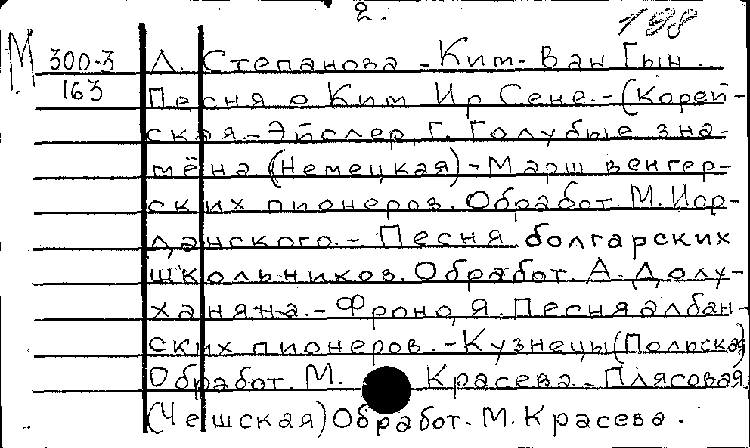 2.
198
М 300-3 Л. Степанова - Ким-Ван Гын.
163 Песня о Ким Ир Сене. - (Корей-
ская - Эйслер, Г. Голубые зна-
мёна (Немецкая) - Марш венгер-
ских пионеров. Обработ. М. Иор-
данского. - Песня болгарских
школьников. Обработ. А. Долу-
ханяна. - Фроно, Я. Песня албан-
ских пионеров. - Кузнецы (Польская)
Обработ. М. Красева. - Плясовая
(Чешская) Обработ. М. Красева.